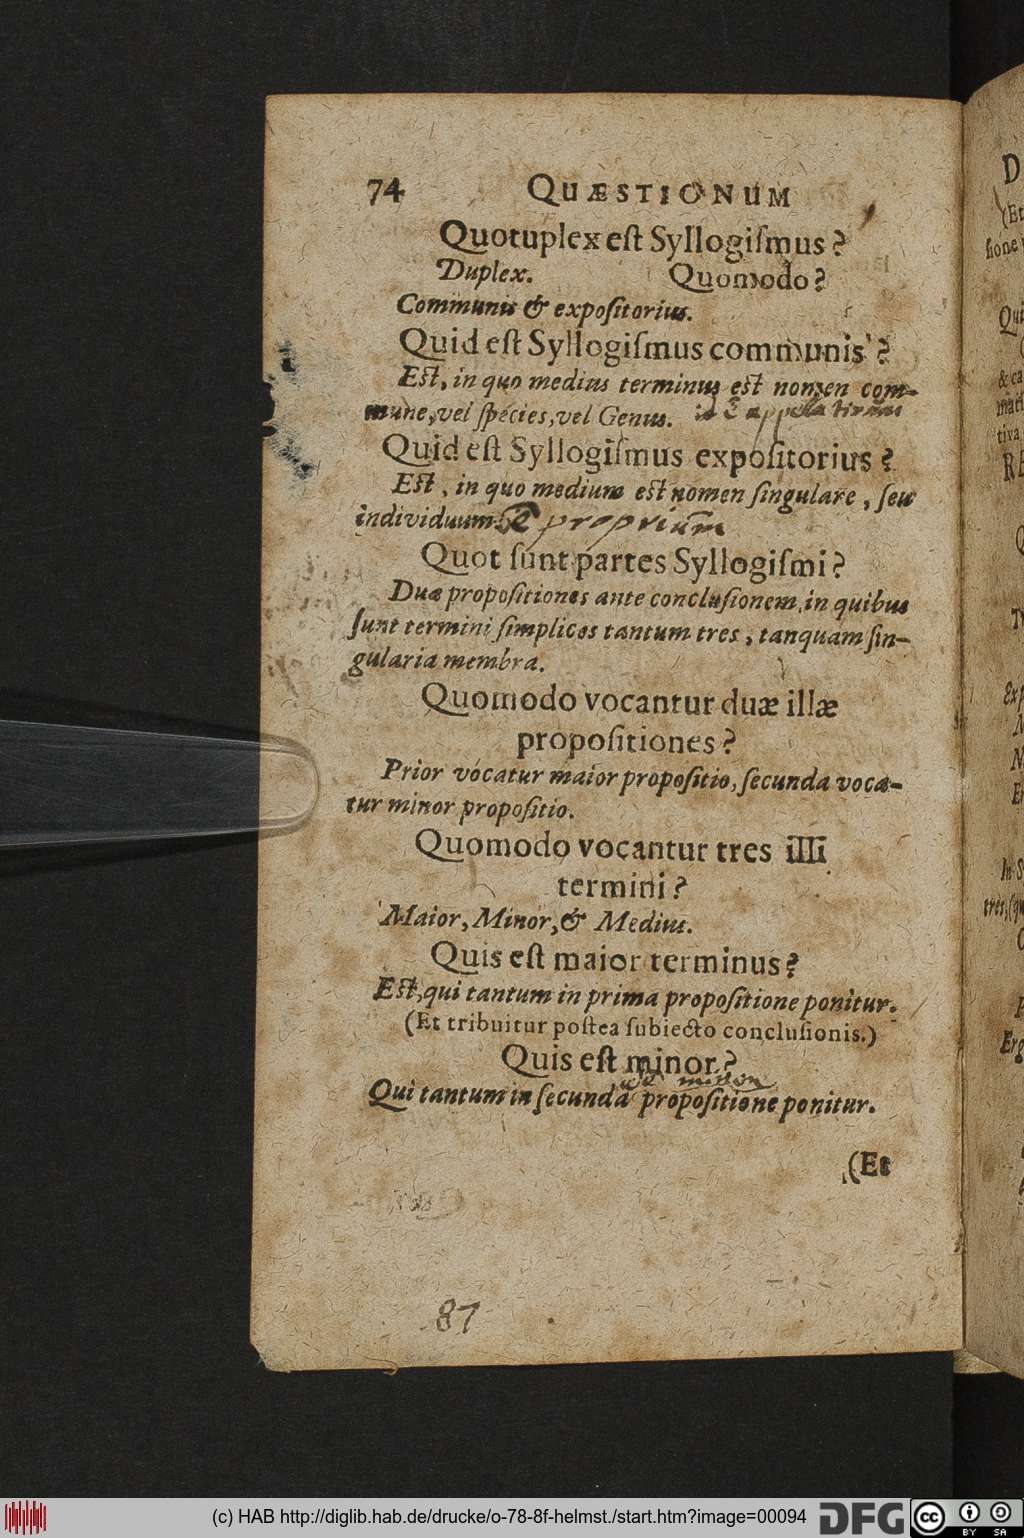 74 QUÆSTIONUM
Quotuplex est Syllogiſmus?
Duplex. Quomodo?
Communis & expoſitorius.
Quid eſt Syllogiſmus communis?
Eſt, in quo medius terminus eſt nomen com-
mune, vel ſpecies, vel Genus. id ē appellativum
Quid eſt Syllogiſmus expoſitorius?
Eſt, in quo medium eſt nomen ſingulare, ſeu
individuum. proprium
Quot ſunt partes Syllogiſmi?
Duæ propoſitiones ante concluſionem, in quibus
ſunt termini ſimplices tantum tres, tanquam ſin-
gularia membra.
Quomodo vocantur duæ illæ
propoſitiones?
Prior vocatur maior propoſitio, ſecunda voca-
tur minor propoſitio.
Quomodo vocantur tres illi
termini?
Maior, Minor, & Medius.
Quis eſt maior terminus?
Eſt, qui tantum in prima propoſitione ponitur.
(Et tribuitur poſtea ſubiecto concluſionis.)
Quis eſt minor?
minori
Qui tantum in ſecunda propoſitione ponitur.
(Et
87
D
(Et
ſione
Qui
(c) HAB http://diglib.hab.de/drucke/o-78-8f-helmst./start.htm?image=00094 DFG cc BY SA